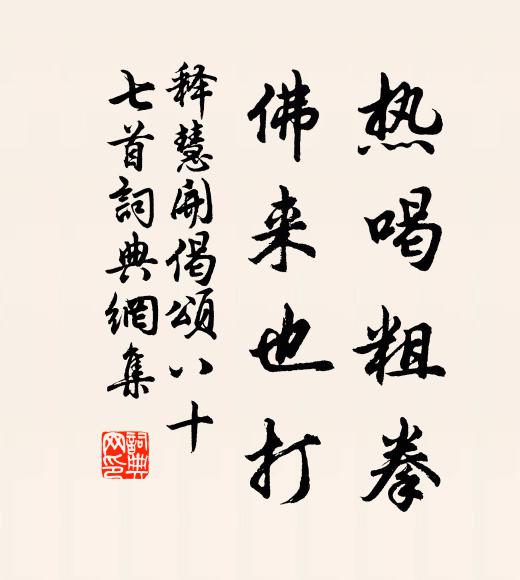 热喝粗拳
佛来也打
释慧開偈頌八十
七首詞典網集
詞典网印